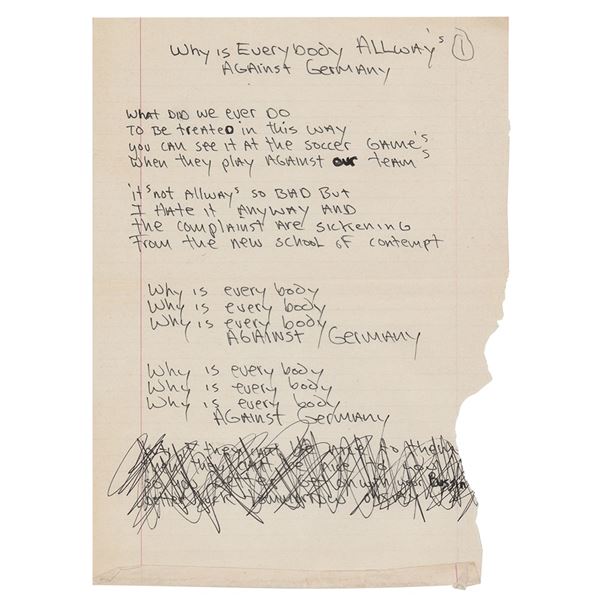 Why is Everybody ALLWAY's 1
AGAinst Germany
What DiD we ever DO
TO Be treateD in this WAY
you can see it At the soccer GAMe's
when they PlAY AGAinst our teAM's
it's not Allway's so BAD But
I Hate it AnyWAY AnD
the complainst are sickening
From the new school of contempt
Why is every body
Why is every body
Why is every body
AGAinst Germany
Why is every body
Why is every body
Why is every body
AGAinst Germany
they be nice to them
they be nice to
on with your